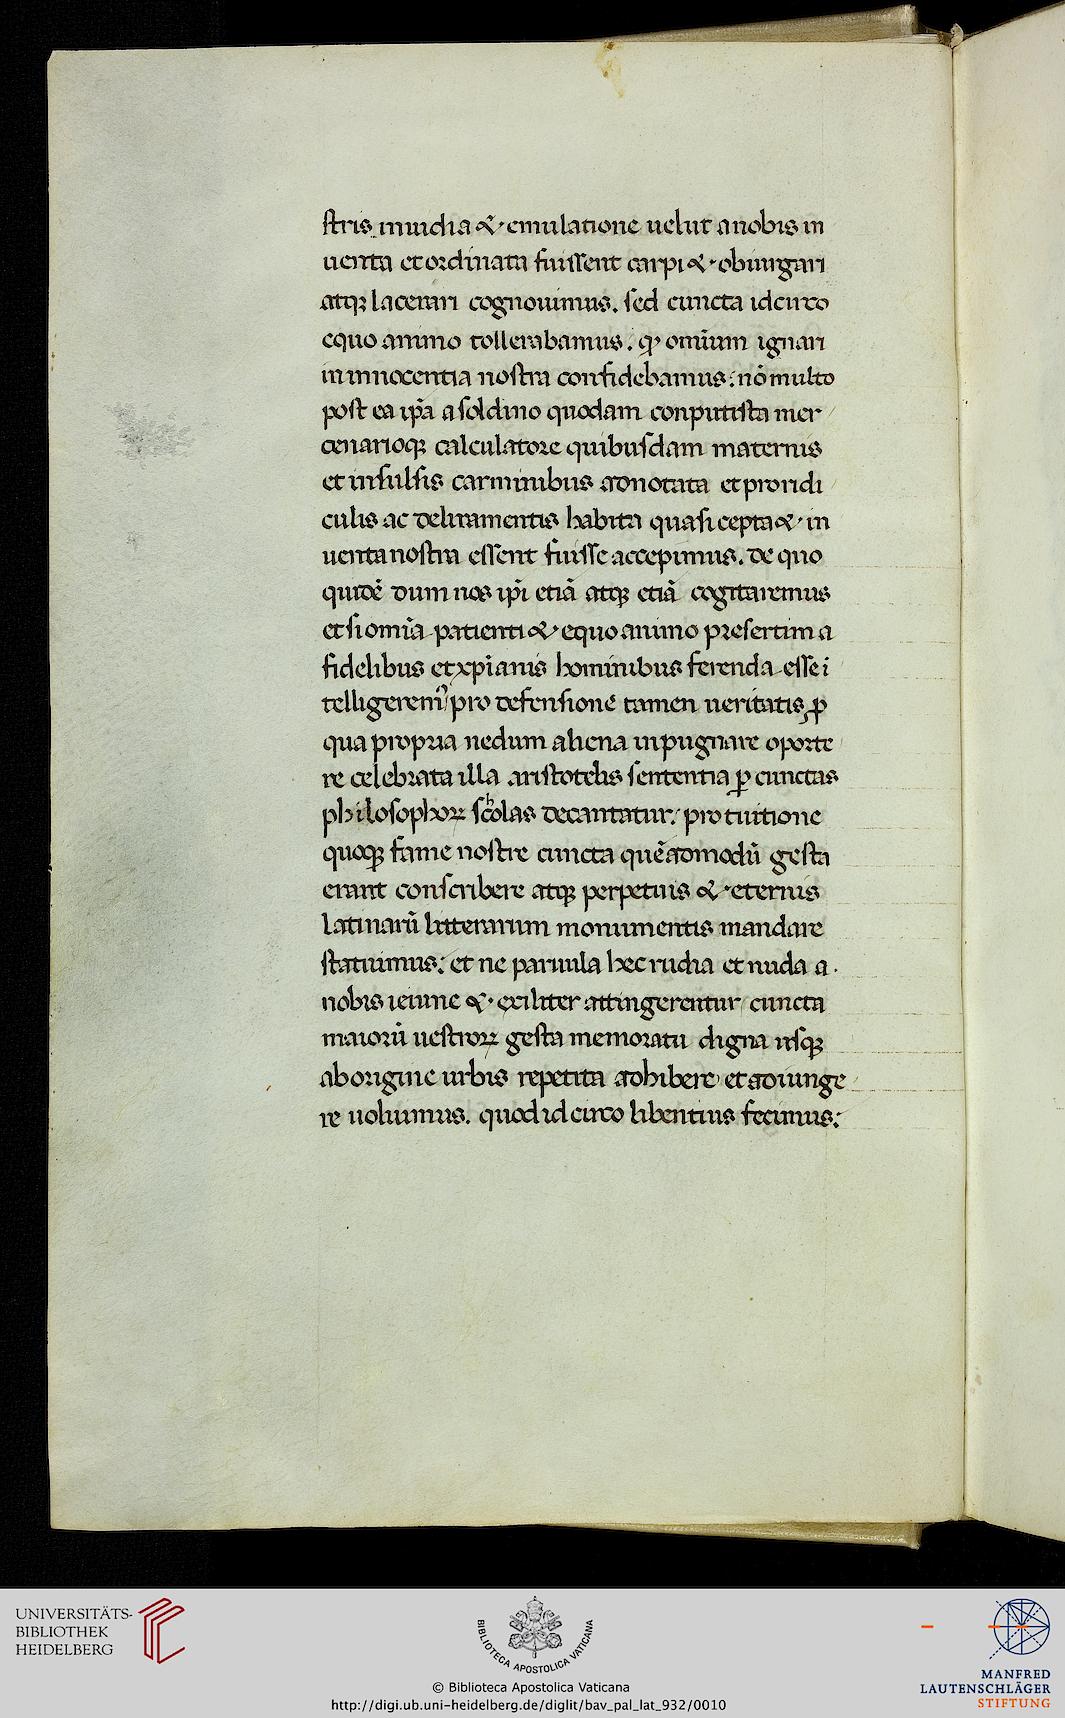 stris inuidia &· emulatione uelut a nobis in
uenta et ordinata fuissent carpi &· obiurgari
atqꝫ lacerari cognouimus. sed cuncta idcirco
equo animo tollerabamus. qꝫ omĩum ignari
in innocentia nostra confidebamus: nõ multo
post ea ip̃a a soldino quodam conputista mer
cenarioqꝫ calculatore quibusdam maternis
et insulsis carminibus adnotata et pro ridi
culis ac deliramentis habita quasi cepta &· in
uenta nostra essent fuisse accepimus. de quo
quidẽ dum nos ip̃i etiã atqꝫ etiã cogitaremus
et si om̃ia patienti &· equo animo presertim a
fidelibus et xp̃ianis hominibus ferenda esse ĩ
telligerem᷒ pro defensione tamen ueritatis ꝓ
qua propria nedum aliena inpugnare oporte
re celebrata illa aristotelis sententia ꝑ cunctas
philosophoꝝ scholas decantatur: pro tuitione
quoqꝫ fame nostre cuncta quẽadmodũ gesta
erant conscribere atqꝫ perpetuis &· eternis
latinarũ litterarum monumentis mandare
statuimus: et ne paruula hec rudia et nuda a
nobis ieiune &· exiliter attingerentur cuncta
maiorũ uestroꝝ gesta memoratu digna usqꝫ
ab origine urbis repetita adhibere et adiunge
re uoluimus. quod idcirco libentius fecimus:
UNIVERSITÄTS-
BIBLIOTHEK
HEIDELBERG
BIBLIOTECA APOSTOLICA VATICANA
© Biblioteca Apostolica Vaticana
http://digi.ub.uni-heidelberg.de/diglit/bav_pal_lat_932/0010
MANFRED
LAUTENSCHLÄGER
STIFTUNG